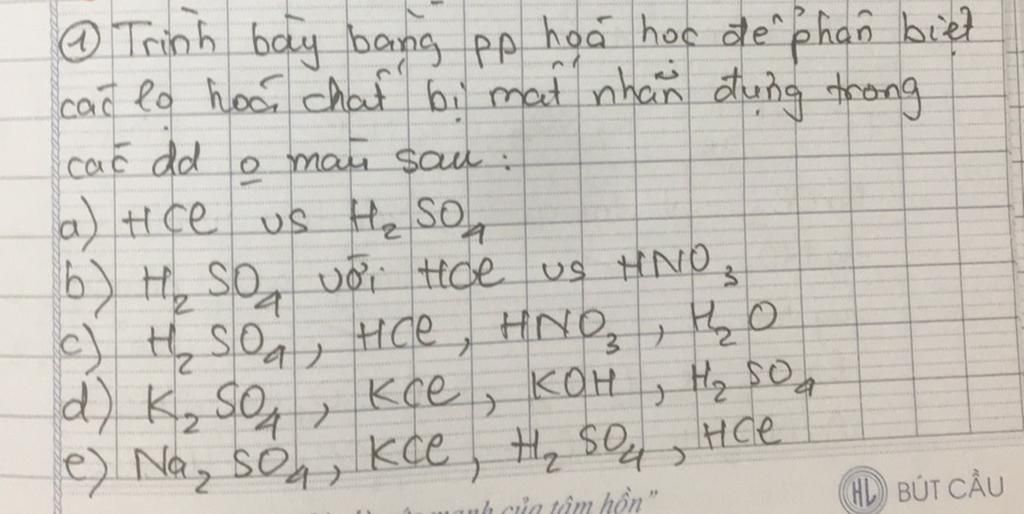 ① Trình bày bằng pp hoá học để phân biệt
các lọ hoá chất bị mất nhãn đựng trong
các dd o màu sau:
a) HCl vs H₂SO₄
b) H₂SO₄ với HCl vs HNO₃
c) H₂SO₄, HCl, HNO₃, H₂O
d) K₂SO₄, KCl, KOH, H₂SO₄
e) Na₂SO₄, KCl, H₂SO₄, HCl
của tâm hồn"
HL BÚT CẦU